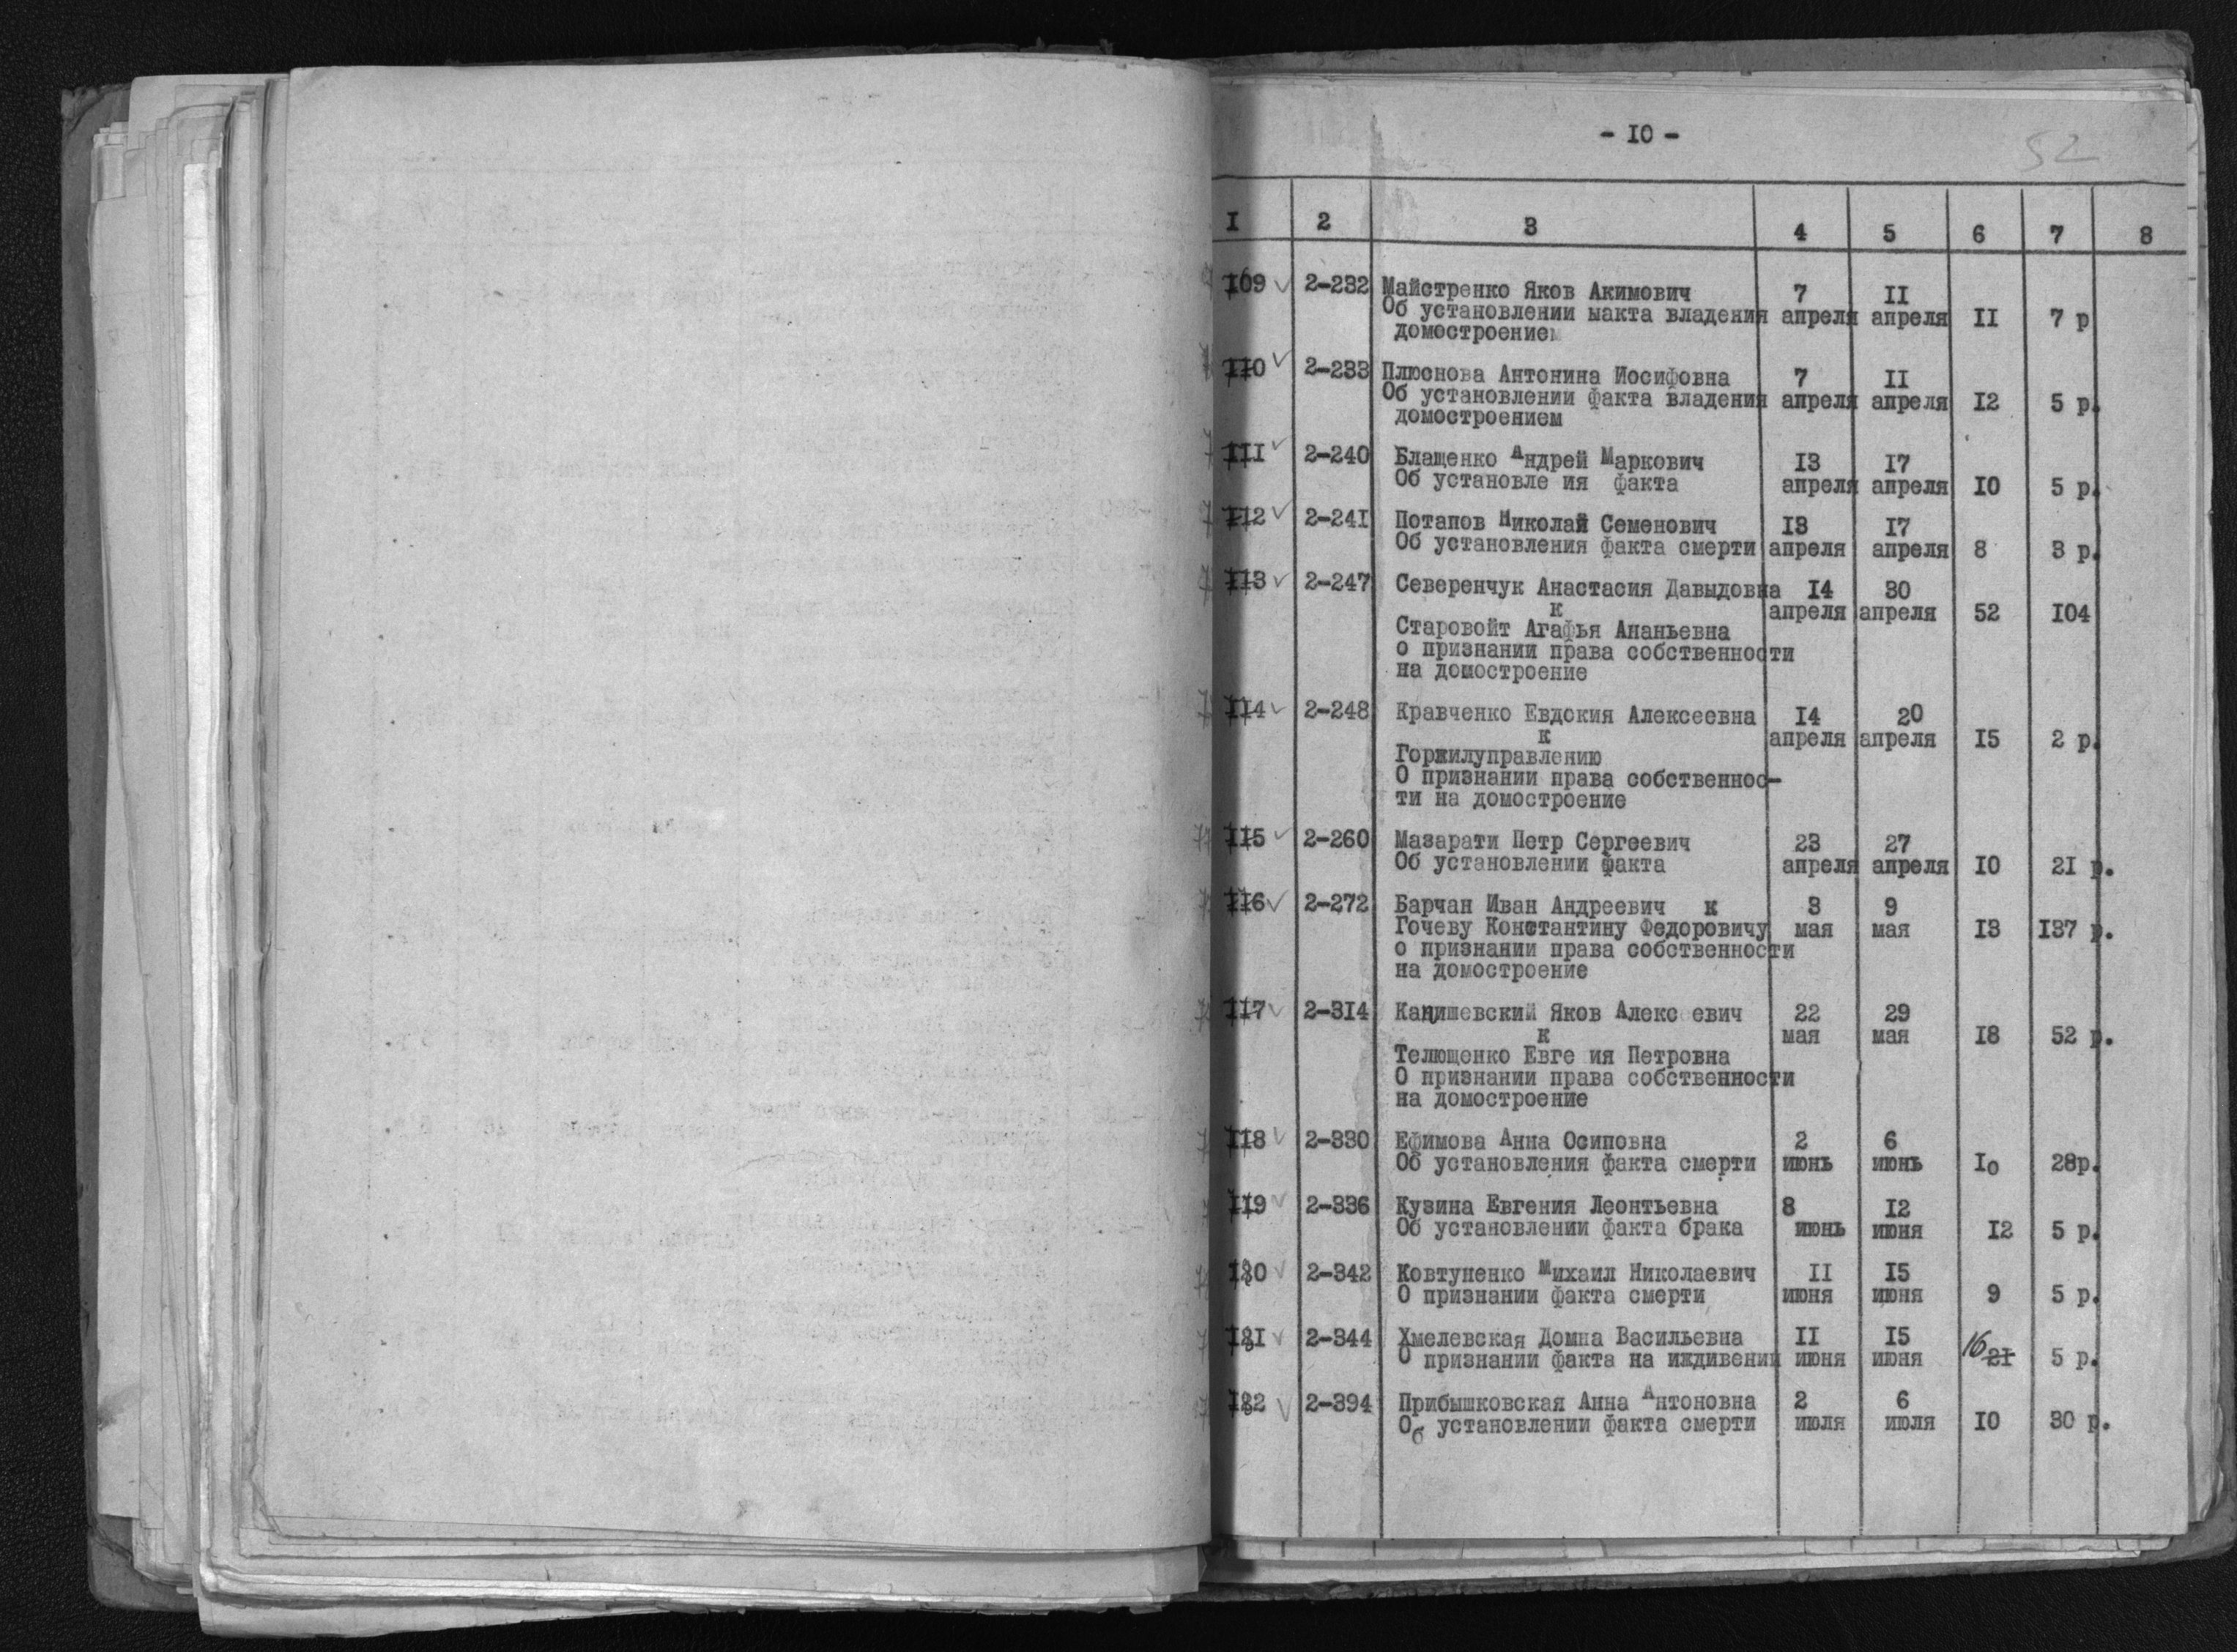 - 10 -
52
I 2 3 4 5 6 7 8
109 2-232 Майстренко Яков Акимович 7 II
Об установлении макта владения апреля апреля II 7 р
домостроением
110 2-233 Плюснова Антонина Иосифовна 7 II
Об установлении факта владения апреля апреля I2 5 р.
домостроением
III 2-240 Блащенко Андрей Маркович I3 I7
Об установле ия факта апреля апреля I0 5 р.
II2 2-241 Потапов Николай Семенович I3 I7
Об установления факта смерти апреля апреля 8 3 р.
II3 2-247 Северенчук Анастасия Давыдовна I4 30
к апреля апреля 52 I04
Старовойт Агафья Ананьевна
о признании права собственности
на домостроение
II4 2-248 Кравченко Евдокия Алексеевна I4 20
к апреля апреля I5 2 р.
Горжилуправлению
О признании права собственнос-
ти на домостроение
II5 2-260 Мазарати Петр Сергеевич 23 27
Об установлении факта апреля апреля I0 2I р.
II6 2-272 Барчан Иван Андреевич к 3 9
Гочеву Константину Федоровичу мая мая I3 I37 р.
о признании права собственности
на домостроение
II7 2-3I4 Канишевский Яков Алекс евич 22 29
к мая мая I8 52 р.
Телющенко Евге ия Петровна
О признании права собственности
на домостроение
II8 2-330 Ефимова Анна Осиповна 2 6
Об установления факта смерти июнь июнь Iо 28р.
II9 2-336 Кузина Евгения Леонтьевна 8 I2
Об установлении факта брака июнь июня I2 5 р.
I20 2-342 Ковтуненко Михаил Николаевич II I5
О признании факта смерти июня июня 9 5 р.
I2I 2-344 Хмелевская Домна Васильевна II I5
О признании факта на иждивении июня июня 16 21 5 р.
I22 2-394 Прибышковская Анна Антоновна 2 6
Об установлении факта смерти июля июля I0 30 р.